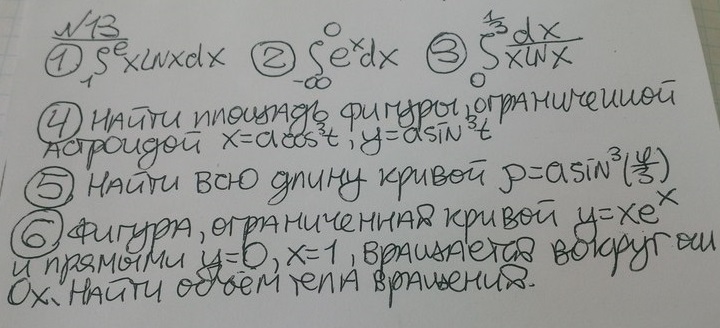 N13
① ∫₁ᵉ xlnxdx ② ∫₋∞⁰ eˣdx ③ ∫₀^(1/3) dx/(xlnx)
④ Найти площадь фигуры, ограниченной
астроидой x=acos³t, y=asin³t
⑤ Найти всю длину кривой ρ=asin³(φ/3)
⑥ Фигура, ограниченная кривой y=xeˣ
и прямыми y=0, x=1, вращается вокруг оси
Ox. Найти объём тела вращения.